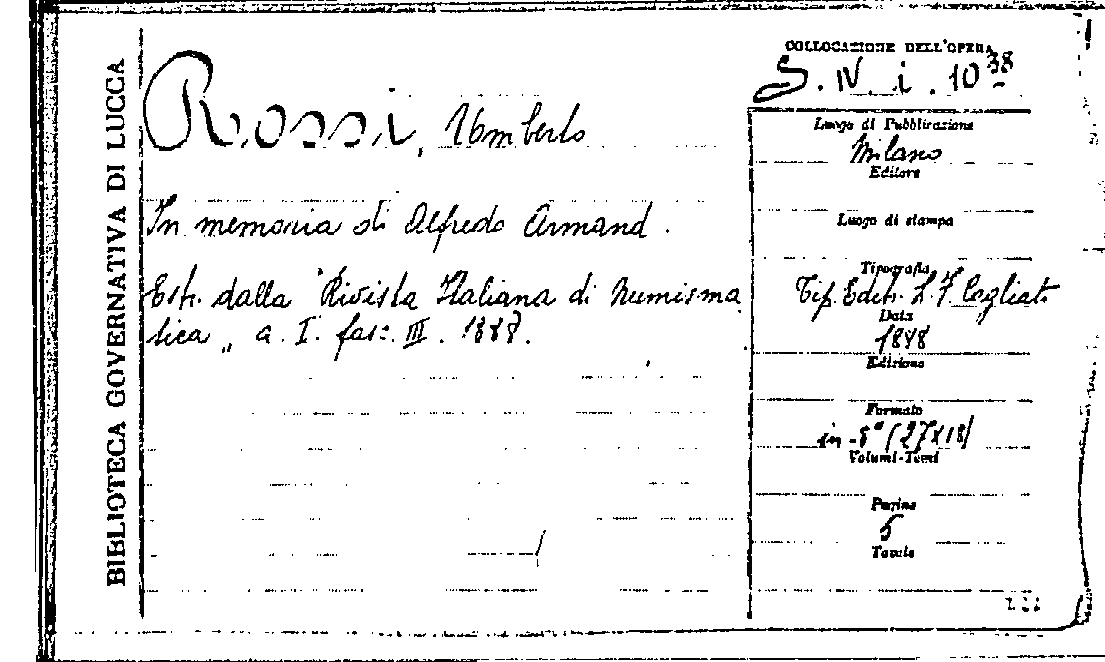 BIBLIOTECA GOVERNATIVA DI LUCCA
Rossi, Umberto
In memoria di Alfredo Armand.
Estr. dalla "Rivista Italiana di Numisma
tica„ a. I. fasc. III. 1888.
COLLOCAZIONE DELL'OPERA
S. IV. i. 10 38
Luogo di Pubblicazione
Milano
Editore
Luogo di stampa
Tipografia
Tip. Edit. L. F. Cogliati
Data
1888
Edizione
Formato
in-8° (27x18)
Volumi-Tomi
Pagine
5
Tavole